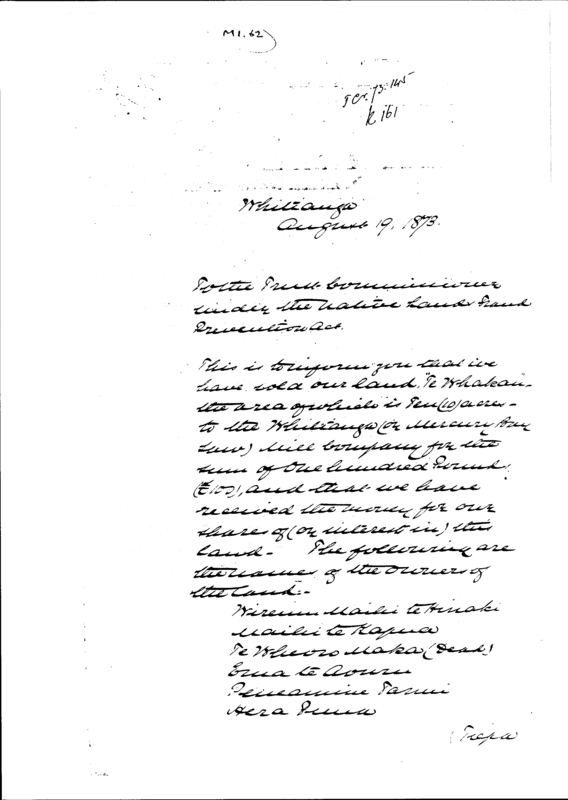 M1.62
Tcr. 73.145
R 161
Whitianga
August 19. 1873.
To the Trust Commissioner
under the Native Land Fraud
Prevention Act.
This is to inform you that we
have sold our land, "Te Whakau-
the area of which is Ten (10) acres-
to the Whitianga (or Mercury Bay
Saw) Mill Company for the
sum of One hundred Pounds
(£100), and that we have
received the money for our
shares of (or interest in) this
land - The following are
the names of the owners of
the land:-
Wiremu Maihi te Hinaki
Maihi te Kapua
Te Whero Maka (Dead)
Ema te Aouru
Peneamine Tanui
Hera Puna
(Tiepa